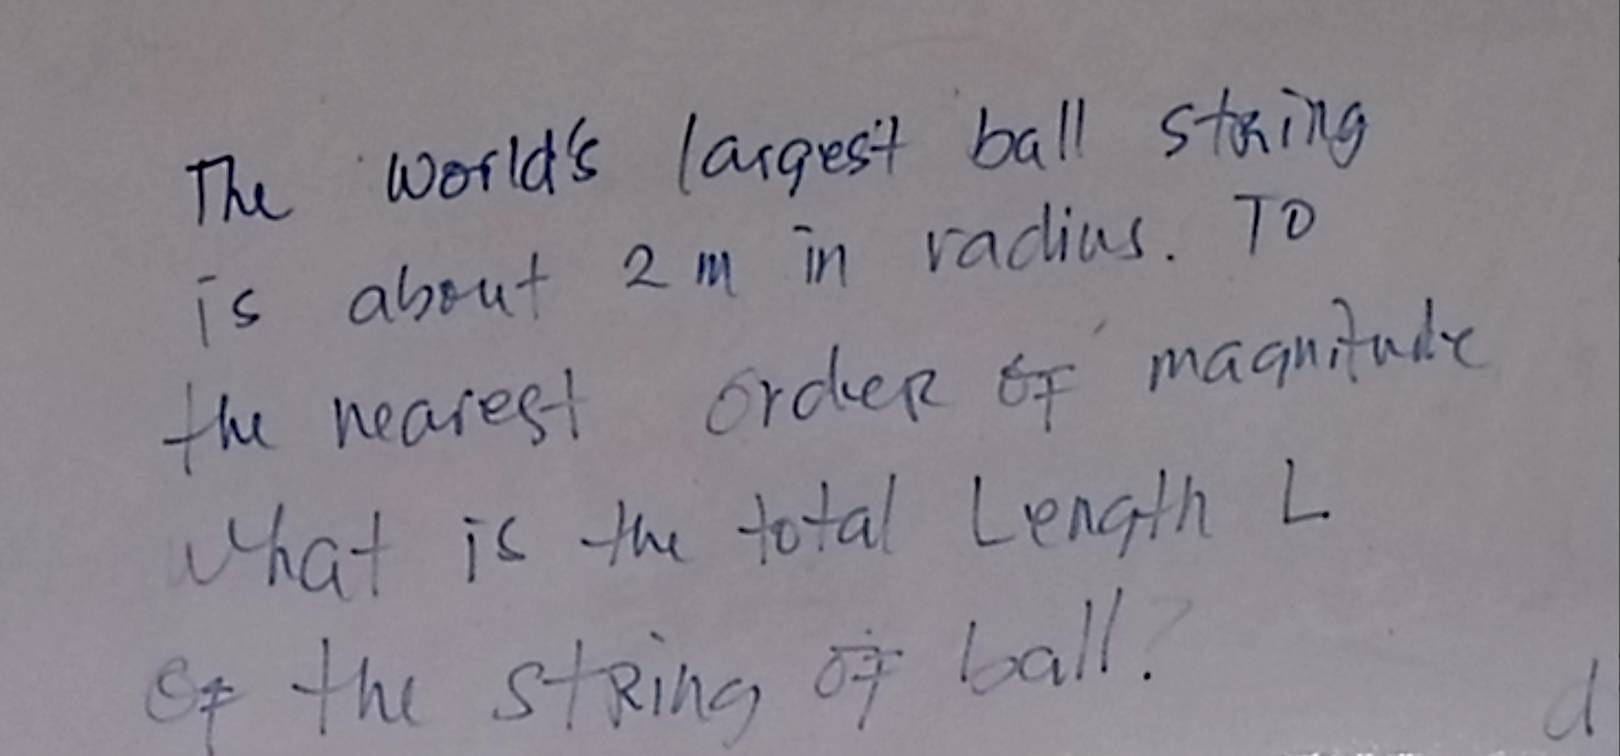 The world's largest ball string
is about 2 m in radius. To
the nearest order of magnitude
what is the total Length L
of the string of ball?
d